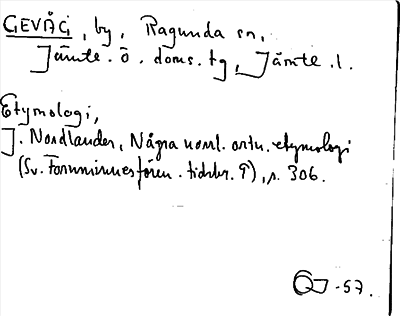 GEVÅG, by, Ragunda sn,
Jämte. ö. doms. tg, Jämte. l.
Etymologi,
J. Nordlander, Några norrl. ortn. etymologi
(Sv. Fornminnesfören. tidskr. 9), s. 306.
-57.